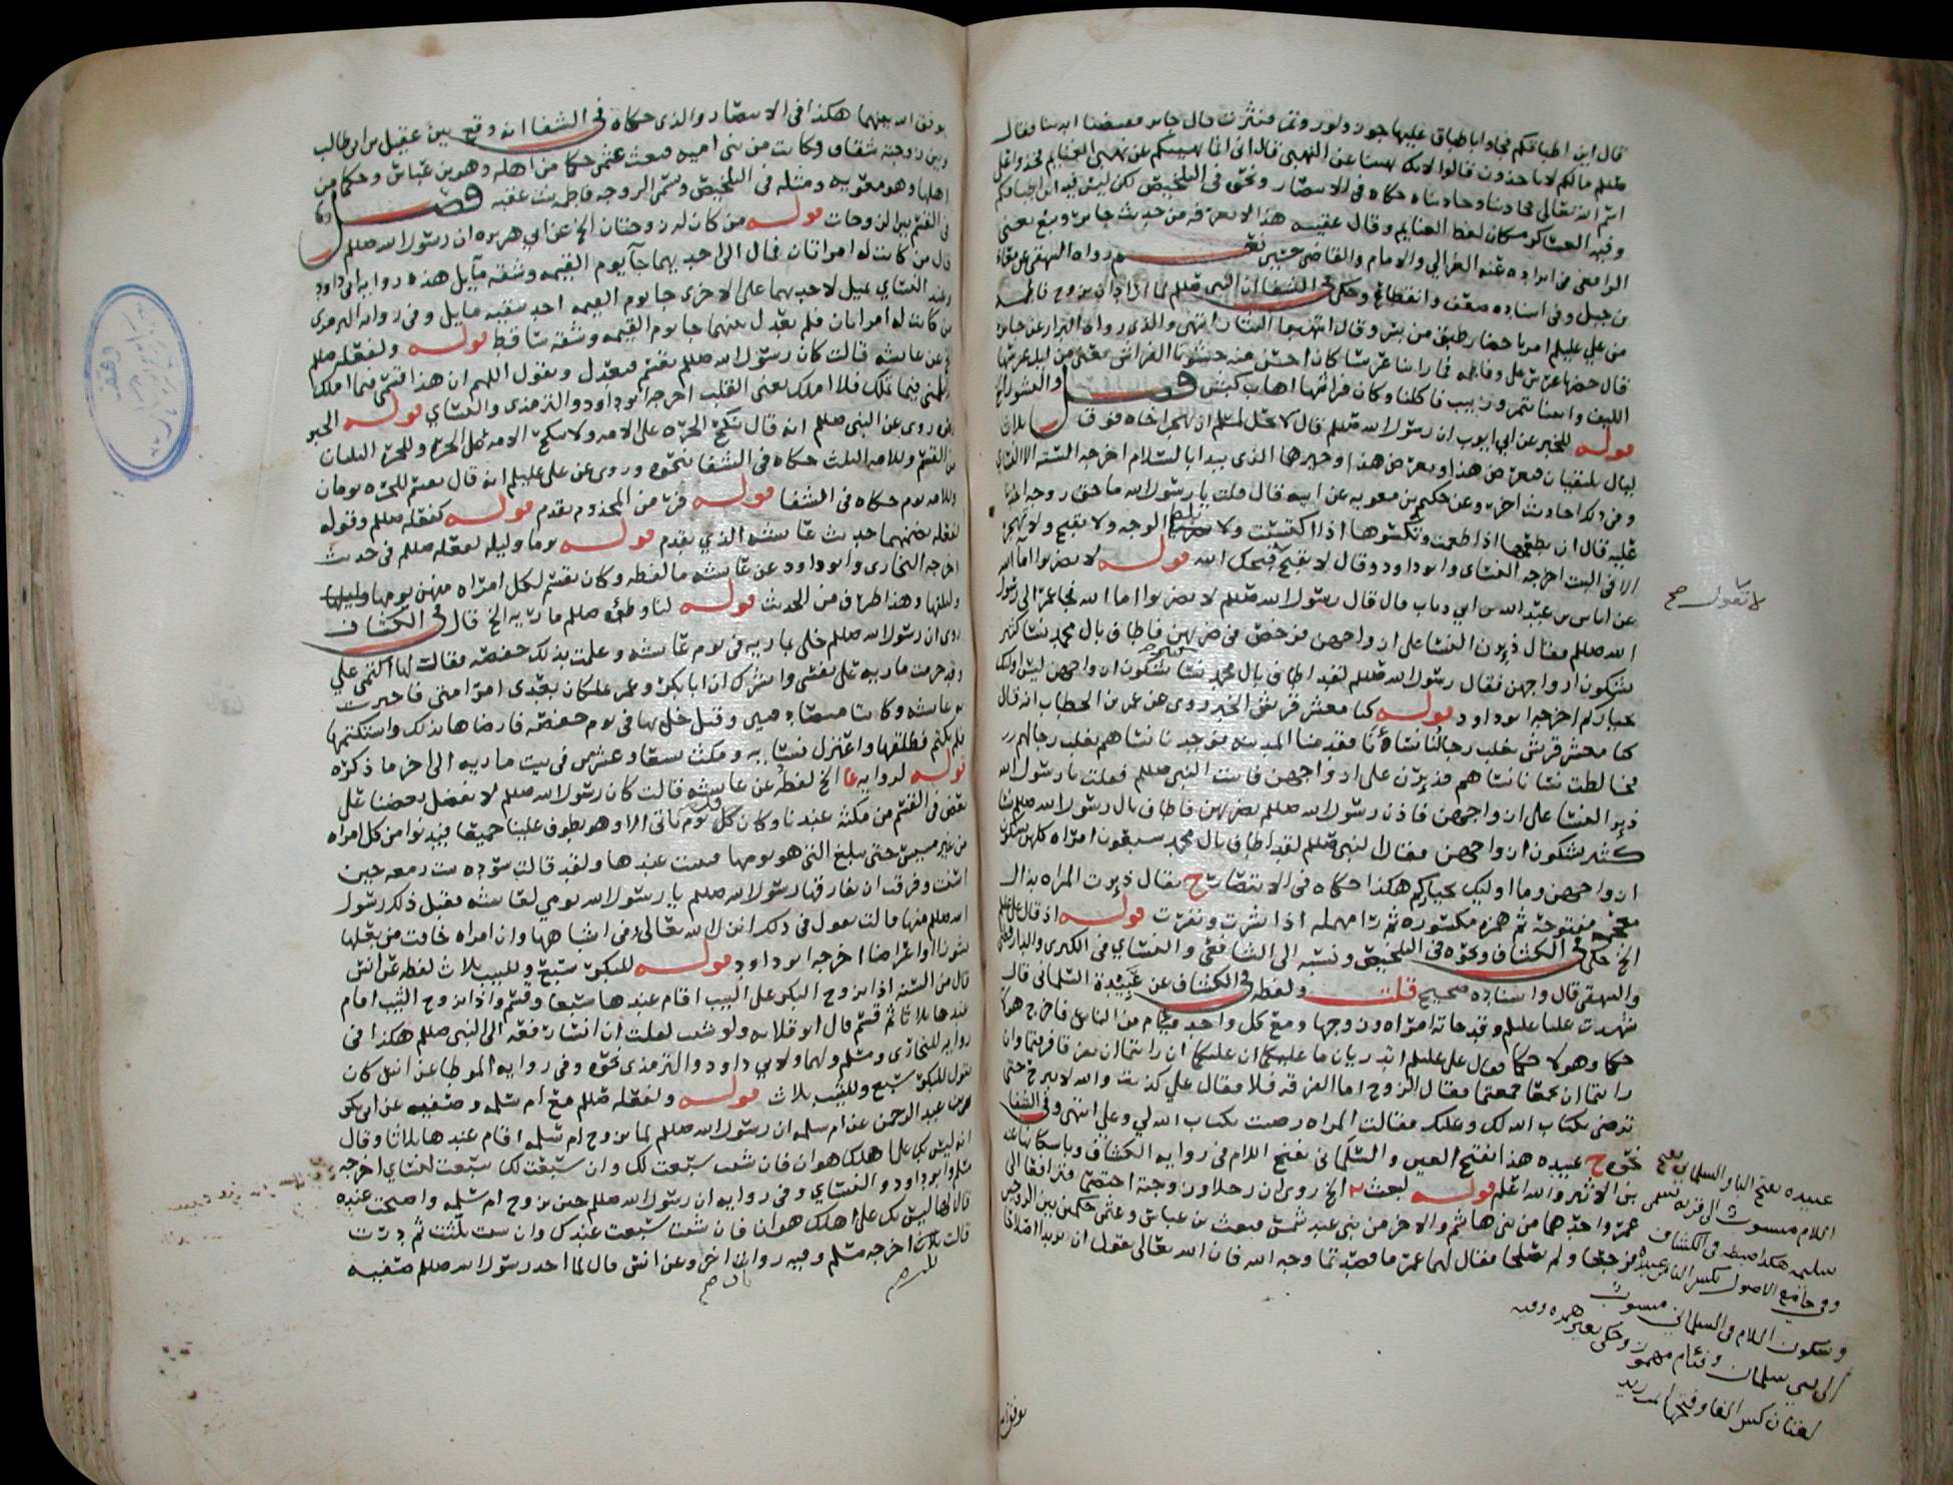 قال اين اطباقكم فجاوا باطباق عليها جوز ولوز وتمر فنثرت قال جابر فقبضنا ايدينا فقال
صللم مالكم لا تاخذون قالوا لانك نهيتنا عن النهبى قال انى انما نهيتكم عن نهبى الغنايم فخذوا على
اسم الله تعالى فجاذبنا وجاذبناه حكاه فى الانتصار ونحوه فى التلخيص لكن ليس فيه اين اطباقكم
وفيه العساكر مكان لفظ الغنايم وقال عقيبه هذا لا نعرفه من حديث جابر
الرافعى فى ايراده عنه الغزالي والامام والقاضى حسين نعم رواه البيهقى عن معاذ
بن جبل وفى اسناده ضعف وانقطاع وحكى فى الشفا ان النبى صللم لما اراد ان يزوج فاطمه
من علي عليلم
قال حضرنا عرس على وفاطمه فما راينا عرسا كان احسن منه حشونا الفراش يعنى من الليف
واتينا بتمر وزبيب فاكلنا وكان فراشها اهاب كبش فصل والنشوز الخ
قوله للخبر عن ابي ايوب ان رسول الله صللم قال لا يحل لمسلم ان يهجر اخاه فوق ثلاث
ليال يلتقيان فيعرض هذا ويعرض هذا وخيرهما الذى يبدا بالسلام اخرجه الستة الا النسائي
وفى ذلك احاديث اخر وعن حكيم بن معويه عن ابيه قال قلت يا رسول الله ما حق زوجة احدنا
عليه قال ان تطعمها اذا طعمت وتكسوها اذا اكتسيت ولا تضرب الوجه ولا تقبح ولا تهجر
الا فى البيت اخرجه النسائى وابو داود وقال لا تقبح قبحك الله قوله لا تضربوا اما الله
لا تقول صح
عن اياس بن عبد الله بن ابي ذباب قال قال رسول الله صللم لا تضربوا اما الله فجا عمر الى رسول
الله صللم فقال ذئرن النسا على ازواجهن فرخص فى ضربهن فاطاف بال محمد نسا كثير
يشكون ازواجهن فقال رسول الله صللم لقد اطاف بال محمد نسا يشكون ازواجهن ليس اولئك
بخياركم اخرجه ابو داود قوله كنا معشر قريش الخبر روى عن عمر بن الخطاب انه قال
كنا معشر قريش يغلب رجالنا نسأنا فقدمنا المدينه فوجدنا نساهم يغلب رجالهم
فخالطت نسانا نساهم فذئرن على ازواجهن فاتيت النبى صللم فقلت يا رسول الله
ذئر النسا على ازواجهن فاذن رسول الله صللم بضربهن فاطاف بال رسول الله صللم نسا
كثير يشكون ازواجهن فقال النبى صللم لقد اطاف بال محمد سبعون امراه كلهن يشكون
ازواجهن وما اوليك بخياركم هكذا حكاه فى الانتصار ح يقال ذئرت المراه بذال
معجمه مفتوحة ثم همزه مكسوره ثم را مهمله اذا نشزت ونفرت قوله اذ قال علي عليلم
الخ حكى فى الكشاف ونحوه فى التلخيص ونسبه الى الشافعى والنسائي فى الكبرى والدارقطنى
والبيهقى قال واسناده صحيح قلت ولفظه فى الكشاف عن عبيدة السلمانى قال
شهدت عليا عليلم وقد جاته امراه وزوجها ومع كل واحد فئام من الناس فاخرج هولا
حكما وهولا حكما فقال على عليلم اتدريان ما عليكما ان عليكما ان رايتما ان تفرقا فرقتما وان
رايتما ان تجمعا جمعتما فقال الزوج اما الفرقه فلا فقال علي كذبت والله لا تبرح حتى
ترضى بكتاب الله لك وعليك فقالت المراه رضيت بكتاب الله لي وعلي انتهى وفى الشفا
نحوه ح عبيده هذا بفتح العين والسلمانى بفتح اللام فى رواية الكشاف وباسكانها عند
بن الاثير والله اعلم قوله لبعث الخ روى ان رجلا وزوجة اختصما فترافعا الى
عمر واحدهما من بنى هاشم والاخر من بنى عبد شمس فبعث بن عباس وعثمن حكمين بين الزوجين
فرجعا ولم يصلحا فقال لهما عمر ما قصدتما وجه الله فان الله تعالى يقول ان يريدا اصلاحا
عبيده بفتح البا والسلمانى بفتح
اللام منسوب الى قريه تسمى
سلميه هكذا ضبطه فى الكشاف
وفى جامع الاصول بكسر البا من عبيده
وسكون اللام فى السلمانى منسوب
الى بنى سلمان وفئام مهموز وحكى بغير همزه وفيه
لغتان كسر الفا وفتحها
يوفق الله
يوفق الله بينهما هكذا فى الانتصار والذى حكاه فى الشفا انه وقع بين عقيل بن ابي طالب
وبين زوجته شقاق وكانت من بنى اميه فبعث عثمن حكما من اهله وهو بن عباس وحكما من
اهلها وهو معويه ومثله فى التلخيص وسمى الزوجه فاطمه بنت عتبه فصل
فى القسم بين الزوجات قوله من كان له زوجتان الخ عن ابي هريره ان رسول الله صللم
قال من كانت له امراتان فمال الى احديهما جآ يوم القيمه وشقه مآيل هذه روايه ابي داود
وعند النسائي يميل لاحديهما على الاخرى جا يوم القيمه احد شقيه مايل وفى رواية الترمذى
من كانت له امراتان فلم يعدل بينهما جا يوم القيمه وشقه ساقط قوله ولفعله صللم
الخ عن عائشه قالت كان رسول الله صللم يقسم فيعدل ويقول اللهم ان هذا قسمى فيما املك
فلا تلمنى فيما تملك فلا املك يعنى القلب اخرجه ابو داود والترمذى والنسائي قوله الخبر
روى عن النبى صللم انه قال تنكح الحرة على الامه ولا تنكح الامه على الحرة وللحرة الثلثان
من القسم وللامه الثلث حكاه فى الشفا ونحوه وروى عن على عليلم انه قال يقسم للحره يومان
وللامه يوم حكاه فى الشفا قوله فرّ من المجذوم تقدم قوله كفعله صللم وقوله
لفعله تضمنهما حديث عائشه الذي تقدم قوله يوما وليله لفعله صللم فى حديث
اخرجه البخارى وابو داود عن عائشه ما لفظه وكان يقسم لكل امراه منهن يومها وليلتها
وليلتها وهذا طرف من الحديث قوله لنا وطؤه صللم ماريه الخ قال فى الكشاف
روى ان رسول الله صللم خلى بماريه فى يوم عائشه وعلمت بذلك حفصه فقالت لها اكتمى علي
وقد حرمت ماريه على نفسى وابشرك ان ابا بكر وعمر يملكان بعدى امر امتى فاخبرت
به عائشه وكانتا متصادقتين وقيل خلى بها فى يوم حفصه فارضاها بذلك واستكتمها
فلم تكتم فطلقها واعتزل نسايه ومكث تسعا وعشرين فى بيت ماريه الى اخر ما ذكره
قوله لروايه عا الخ لفظه عن عائشه قالت كان رسول الله صللم لا يفضل بعضنا على
بعض فى القسم من مكثه عندنا وكان كل يوم ياتى الا وهو يطوف علينا جميعا فيدنوا من كل امراه
من غير مسيس حتى يبلغ التى هو يومها فيبيت عندها ولقد قالت سوده بنت زمعه حين
اسنت وفرقت ان يفارقها رسول الله صللم يا رسول الله يومي لعائشه فقبل ذلك رسول
الله صللم منها قالت نقول فى ذلك انزل الله تعالى وفى اشباهها وان امراه خافت من بعلها
نشوزا او اعراضا اخرجه ابو داود قوله للبكر سبع وللثيب ثلاث لفظه عن انس
قال من السنه اذا تزوج البكر على الثيب اقام عندها سبعا وقسم واذا تزوج الثيب اقام
عندها ثلاثا ثم قسم قال ابو قلابه ولو شيت لقلت ان انسا رفعه الى النبى صللم هكذا فى
روايه للبخارى ومسلم ولهما ولابي داود والترمذى نحوه وفى روايه الموطا عن انس كان
يقول للبكر سبع وللثيب ثلاث قوله ولفعله صللم مع ام سلمه وصفيه عن ابي بكر
بن عبد الرحمن عن ام سلمه ان رسول الله صللم لما تزوج ام سلمه اقام عندها ثلاثا وقال
انه ليس بك على اهلك هوان فان شيت سبعت لك وان سبعت لك سبعت لنسائي اخرجه
مسلم وابو داود والنسائي وفى روايه ان رسول الله صللم حين تزوج ام سلمه واصبحت عنده
قال لها ليس بك على اهلك هوان فان شيت سبعت عندك وان شيت ثلثت ثم درت
قالت ثلث اخرجه مسلم وفيه روايات اخر وعن انس قال لما اخذ رسول الله صللم صفيه